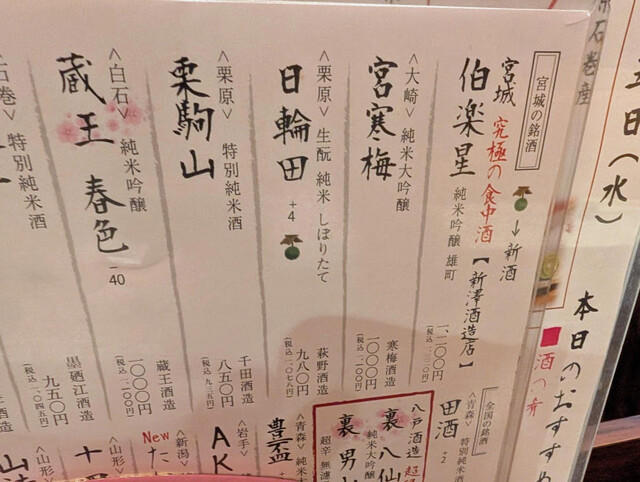 石巻産
五日(水)
本日のおすすめ
酒の肴
宮城の銘酒
↓新酒
宮城 究極の食中酒【新澤酒造店】
伯楽星 純米吟醸 雄町
一、二〇〇円
<大崎> 純米大吟醸
宮寒梅
寒梅酒造
一〇〇〇円
(税込一、一〇〇円)
<栗原> 生酛 純米 しぼりたて
日輪田 +4
萩野酒造
九八〇円
(税込一、〇七八円)
<栗原> 特別純米酒
栗駒山
千田酒造
八五〇円
(税込九三五円)
<白石> 純米吟醸
蔵王 春色 -40
蔵王酒造
一〇〇〇円
(税込一、一〇〇円)
石巻> 特別純米酒
墨廼江酒造
九五〇円
(税込一、〇四五円)
全国の銘酒
<青森> 特別純米酒
田酒 +2
八戸酒造
裏 八仙
純米大吟醸
裏 男山
超辛 無濾
<青森> 純米
豊盃
<岩手>
AK
<新潟>
New た
<山形>
十四
<山形>